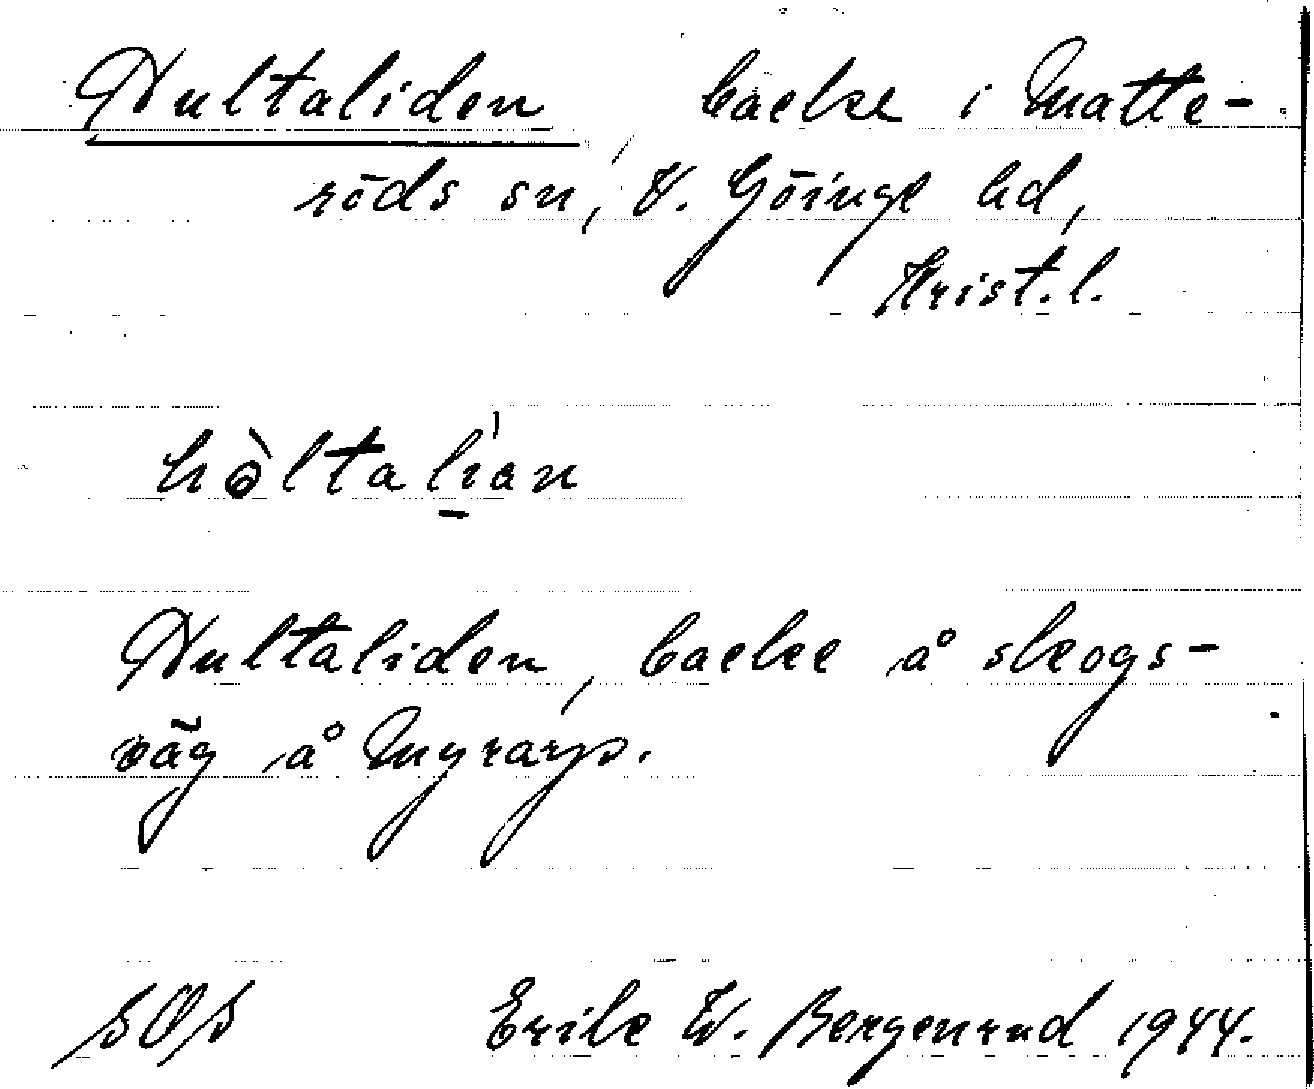 Hultaliden, backe i Matte-
röds sn, V. Göinge hd,
Krist. l.
hòltalían
Hultaliden, backe å skogs-
väg å Myrarp.
SOS Erik W. Bergenrud 1944.